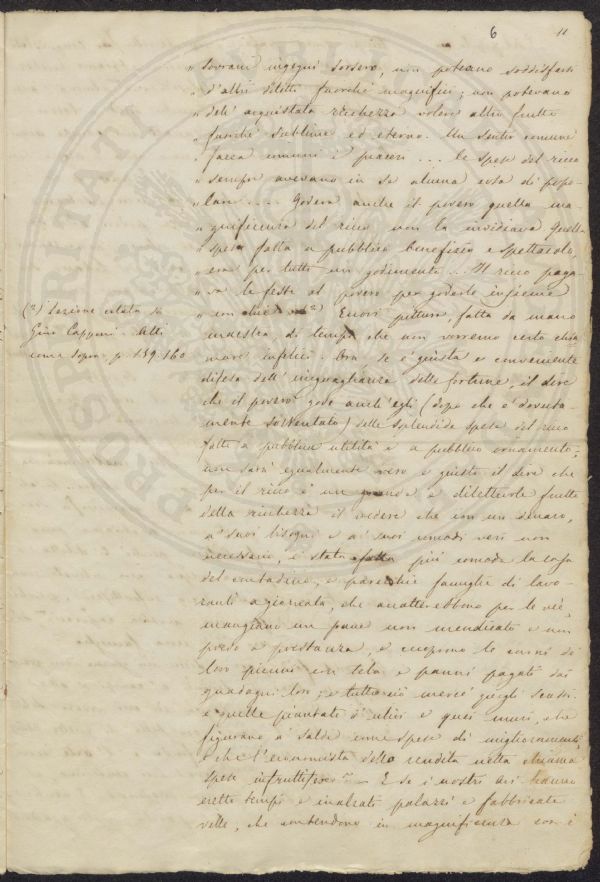 6 11
" sovrani ingegni sorsero, non poteano soddisfarsi
" d'altri diletti fuorchè magnifici; non potevano
" dell'acquistata ricchezza volere altro frutto
" fuorchè sublime ed eterno. Un sentir comune
" facea comuni i piaceri ... le spese del ricco
" sempre avevano in se alcuna cosa di popo-
" lare .... Godeva anche il povero quella ma-
" gnificenza del ricco non la invidiava quella
" spesa fatta a pubblico benefizio e spettacolo,
" era per tutti un godimento ... Il ricco paga-
" va le feste al povero per goderle insieme
" con lui (2) pittura, fatta da mano
maestra, di tempi che non vorremo certo chia
mare infelici. Ora se è giusta e conveniente
difesa dell'ineguaglianza delle fortune, il dire
che il povero gode anch'egli (dopo che è dovuta-
mente sostentato) delle splendide spese del ricco
fatte a pubblica utilità e a pubblico ornamento;
non sarà egualmente vero e giusto il dire che
per il ricco è un grande e dilettevole frutto
della ricchezza il vedere che con un denaro,
a' suoi bisogni e a' suoi comodi veri non
necessario, è stata fatta più comoda la casa
del contadino, e parecchie famiglie di lavo-
ranti a giornata, che accatterebbono per le vie,
mangiano un pane non mendicato e non
preso a prestanza, e cuoprono le carni di
loro piccini con tela e panni pagati dai
guadagni loro; e tutto ciò mercè quegli scassi
e quelle piantate d'ulivi e quei muri, che
figurano a' saldi come spese di miglioramenti,
e che l'economista della rendita netta chiama
spese infruttifere — E se i nostri avi hanno
eretto tempi e inalzati palazzi e fabbricate
ville, che contendono in magnificenza con i
(2) Lezione citata di
Gino Capponi. Atti
come sopra p. 159. 160